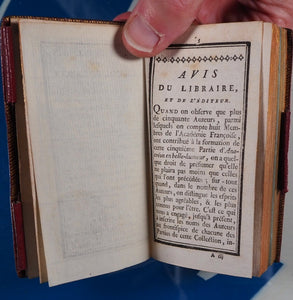 5
AVIS
DU LIBRAIRE,
ET DE L'ÉDITEUR.
QUAND on observe que plus
de cinquante Auteurs, parmi
lesquels on compte huit Mem-
bres de l'Académie Françoise,
ont contribué à la formation de
cette cinquième Partie d'Ana-
en belle humeur, on a quel-
que droit de présumer qu'elle
ne plaira pas moins que celles
qui l'ont précédée; sur-tout
quand, dans le nombre de ces
Auteurs, on distingue les esprits
les plus agréables, & les plus
connus pour l'être. C'est ce qui
nous a engagé, jusqu'à présent,
à inscrire les noms des Auteurs
au frontispice de chacun des
Parties de cette Collection, in-
A iij